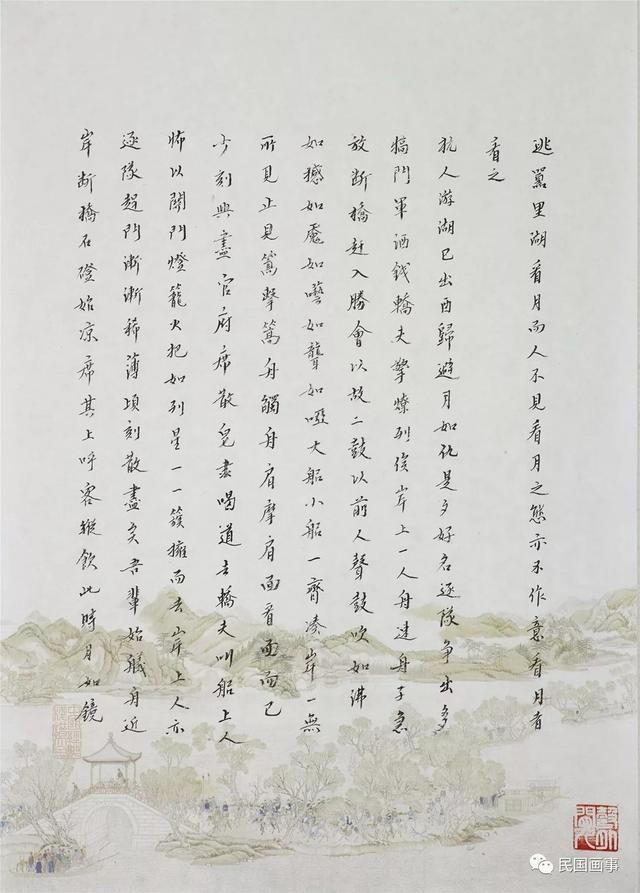 逃嚣里湖看月而人不見看月之態亦不作意看月者
看之
杭人游湖巳出酉歸避月如仇是夕好名逐隊争出多
犒門軍酒錢轎夫擎燎列俟岸上一入舟速舟子急
放断橋趕入勝會以故二鼓以前人聲鼓吹如沸
如撼如魘如囈如聾如啞大船小船一齊湊岸一無
所見止見篙擊篙舟觸舟肩摩肩面看面而已
少刻興盡官府席散皂隶喝道去轎夫叫船上人
怖以關門燈籠火把如列星一一簇擁而去岸上人亦
逐隊趕門漸漸稀薄頃刻散盡矣吾輩始艤舟近
岸断橋石磴始凉席其上呼客縱飲此時月如鏡
民国画事